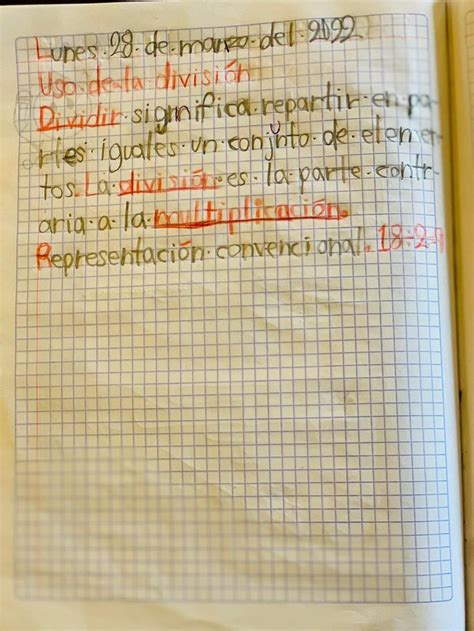 Lunes 28 de marzo del 2022
Uso de la división
Dividir significa repartir en pa
rtes iguales un conjunto de elemen
tos. La división es la parte contr
aria a la multiplicación.
Representación convencional. 18÷2=9